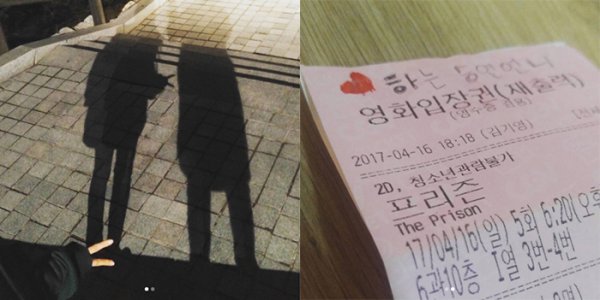 하는
영화입장권(재출력)
(영수증 겸용)
2017-04-16 18:18 (김기영)
2D, 청소년관람불가
프리즌
The Prison
17/04/16(일) 5회 6:20(오후
6관10층 I열 3번-4번